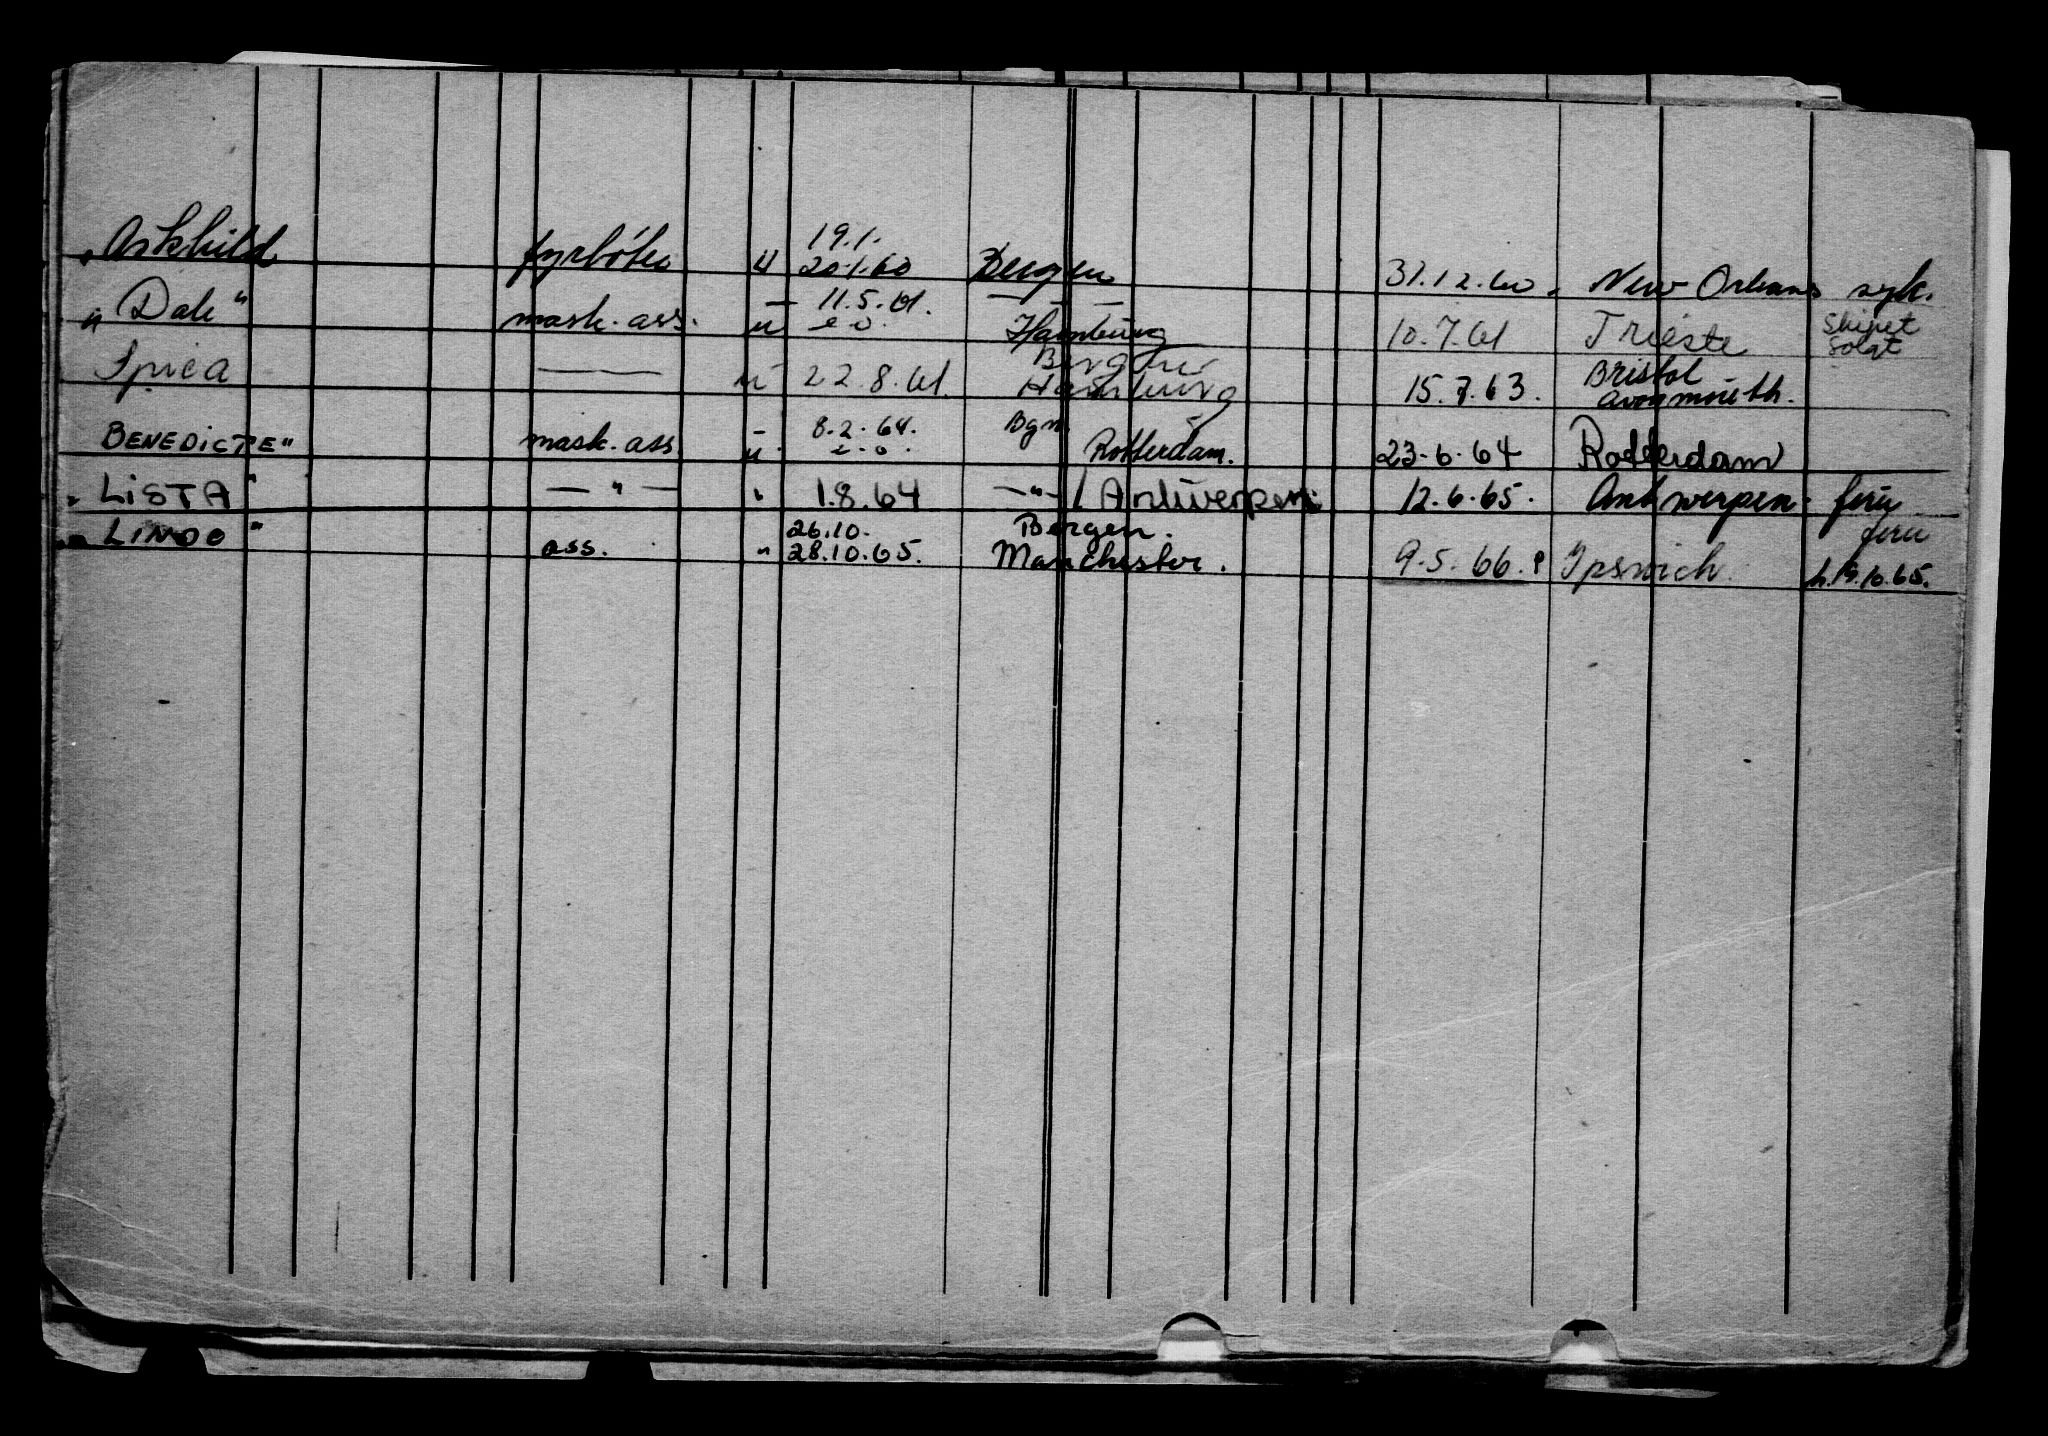 " Askhild fyrbøter u 19.1. 20.1.60 Bergen 31.12.60. New Orleans syk.
" Dale" mask. ass. — u 11.5.61. e.o. — " — Hamburg 10.7.61 Trieste Skipet solgt
Spica — — u 22.8.61. Bergen Hamburg 15.7.63. Bristol Avonmouth.
BENEDICTE" mask. ass — u 8.2.64. e.o. Bgn. Rotterdam. 23.6.64 Rotterdam
" LISTA " — " — " 1.8.64 — " — / Antwerpen. 12.6.65. Antwerpen. ferie
LINDO " ass. " 26.10. 28.10.65. Bergen. Manchester. 9.5.66. P Ipswich. ferie h. 19.10.65.